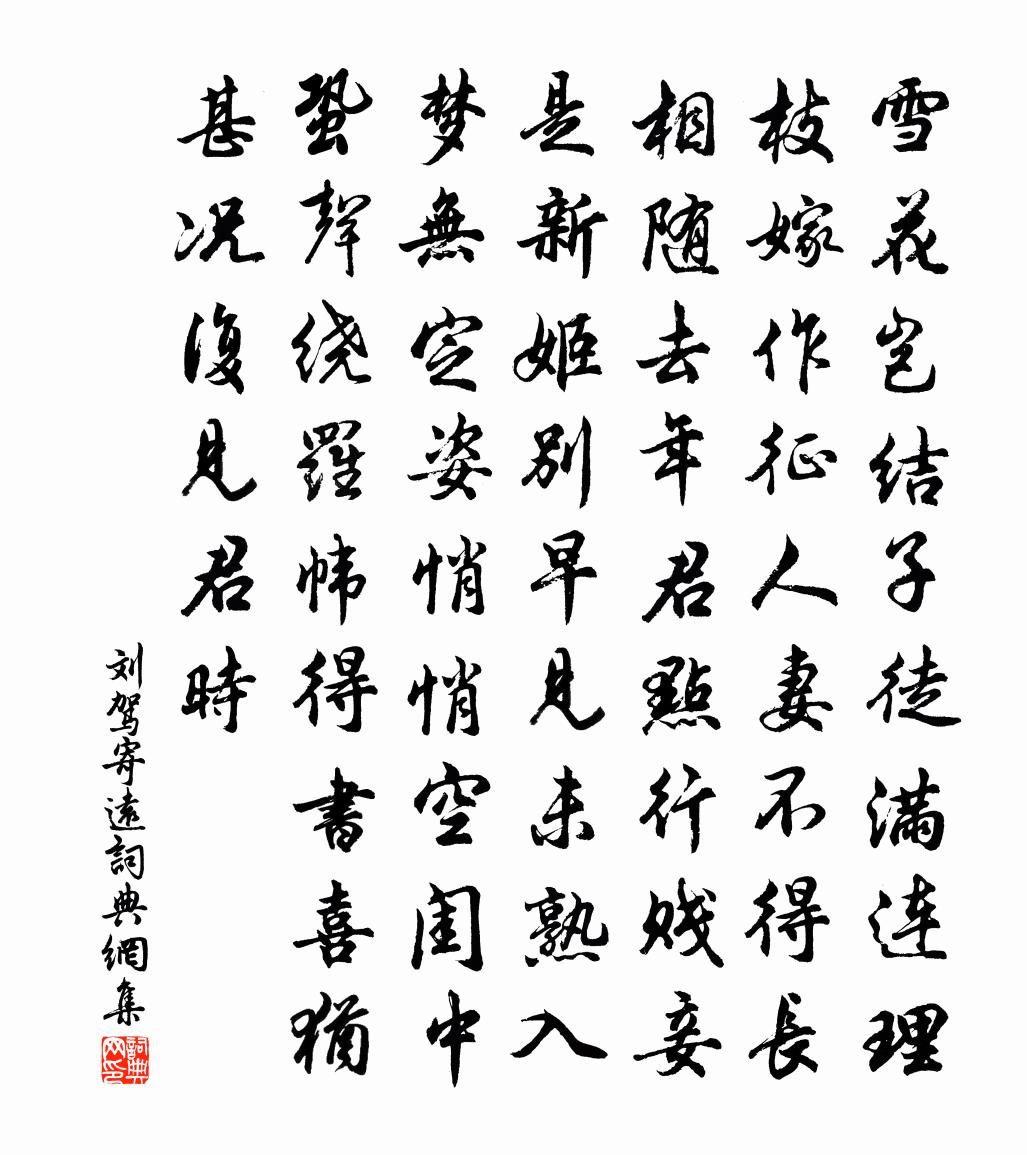 雪花岂结子徒满连理
枝嫁作征人妻不得長
相随去年君點行贱妾
是新姬别早见未熟入
梦無定姿悄悄空闺中
蛩聲绕羅帏得書喜猶
甚况復见君時
刘驾寄遠詞典網集
詞典网印